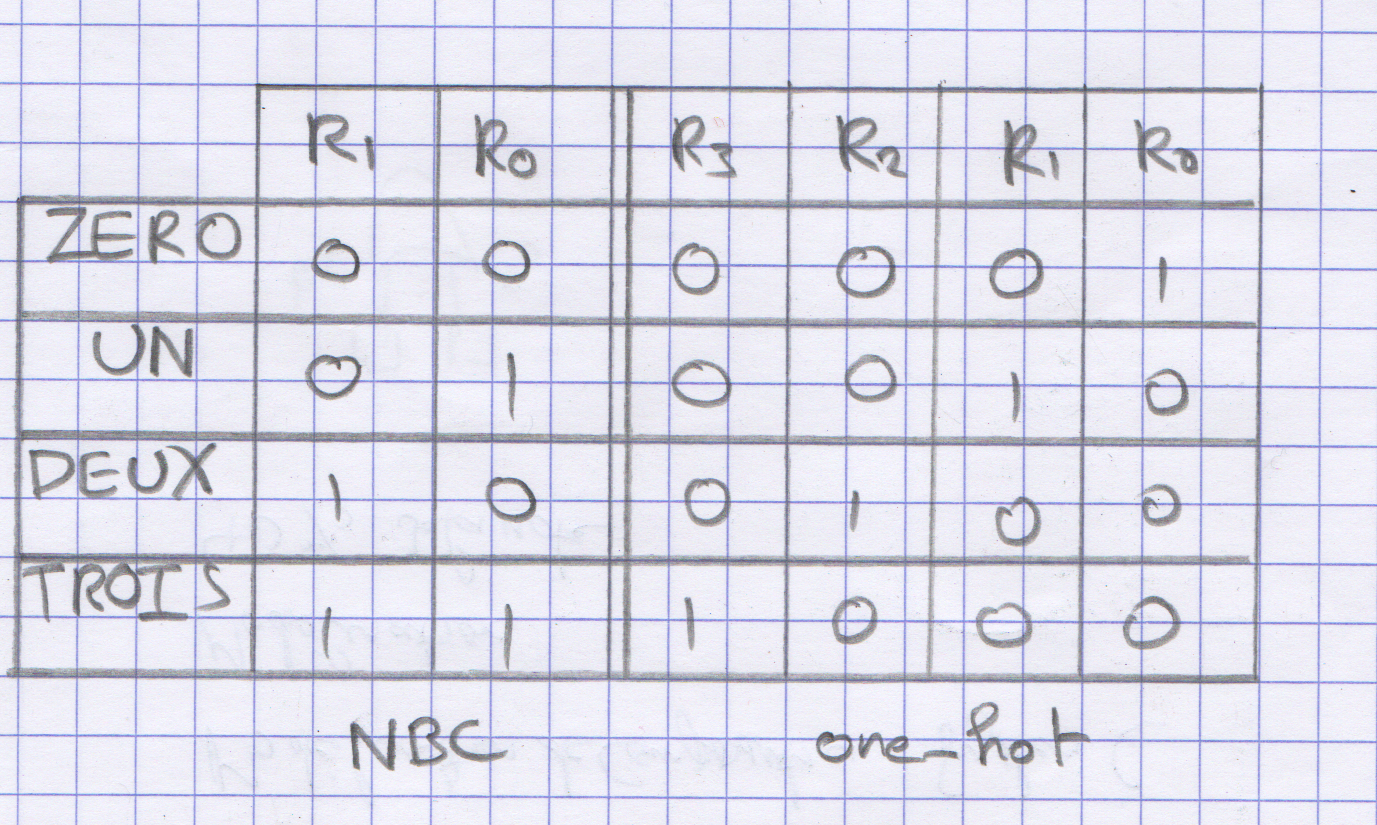 R1 R0 R3 R2 R1 R0
ZERO 0 0 0 0 0 1
UN 0 1 0 0 1 0
DEUX 1 0 0 1 0 0
TROIS 1 1 1 0 0 0
NBC one-hot